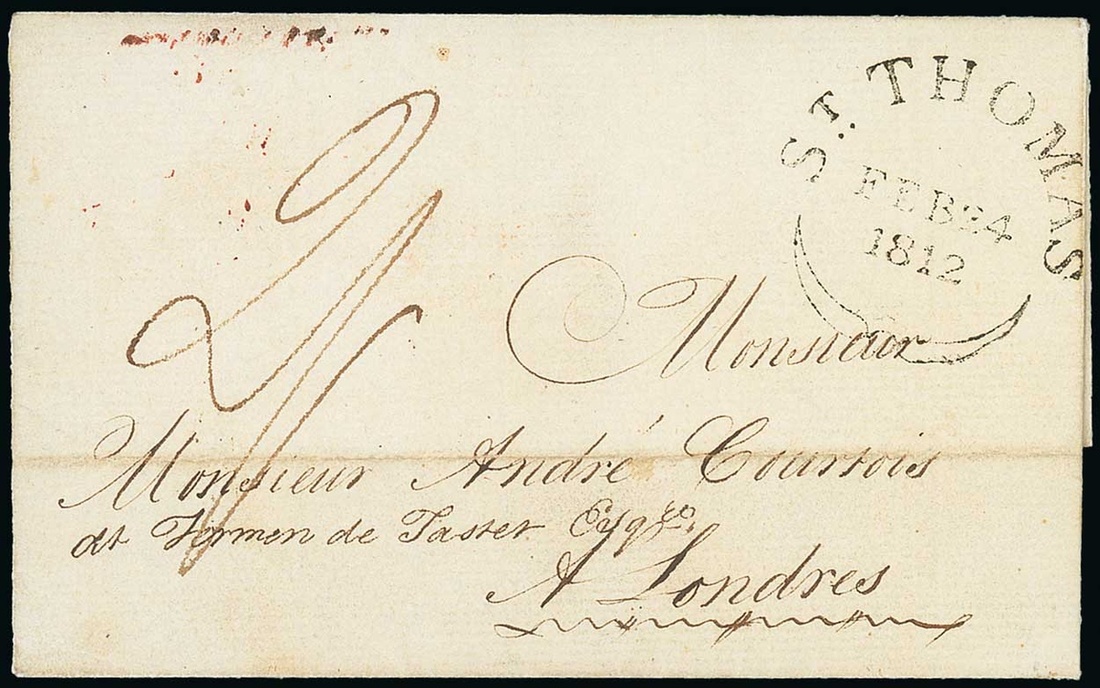 St. THOMAS
FEB 24
1812
2/
Monsieur
Monsieur André Courtois
at Fermen de Taster Esqre.
A Londres